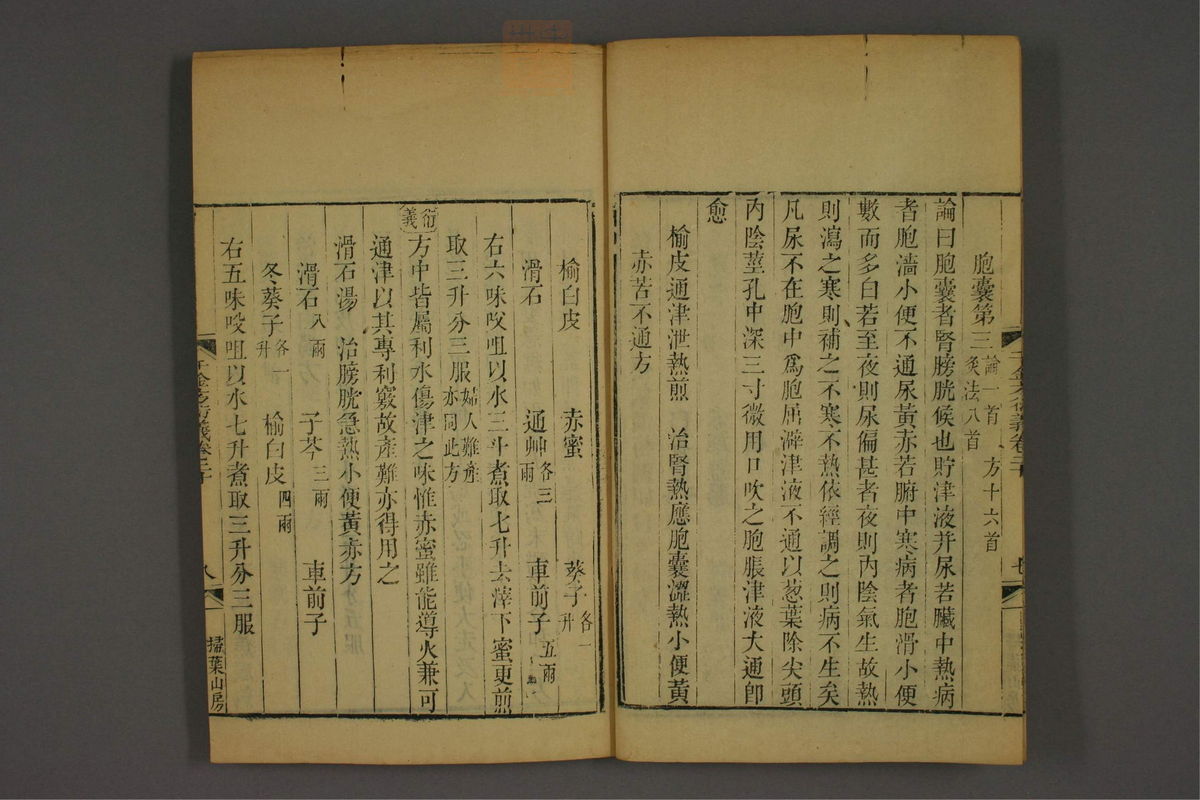 胞囊第三 論一首 方十六首
灸法八首
論曰胞囊者腎膀胱候也貯津液并尿若臟中熱病
者胞濇小便不通尿黃赤若腑中寒病者胞滑小便
數而多白若至夜則尿偏甚者夜則內陰氣生故熱
則瀉之寒則補之不寒不熱依經調之則病不生矣
凡尿不在胞中爲胞屈僻津液不通以葱葉除尖頭
內陰莖孔中深三寸微用口吹之胞脹津液大通卽
愈
榆皮通津泄熱煎 治腎熱應胞囊澀熱小便黃
赤苦不通方
榆白皮 赤蜜 葵子各一升
滑石 通艸各三兩 車前子五兩
右六味㕮咀以水三斗煮取七升去滓下蜜更煎
取三升分三服婦人難產亦同此方
衍義 方中皆屬利水傷津之味惟赤蜜雖能導火兼可
通津以其專利竅故產難亦得用之
滑石湯 治膀胱急熱小便黃赤方
滑石八兩 子芩三兩 車前子
冬葵子各一升 榆白皮四兩
右五味㕮咀以水七升煮取三升分三服
千金方衍義卷二十 八 掃葉山房